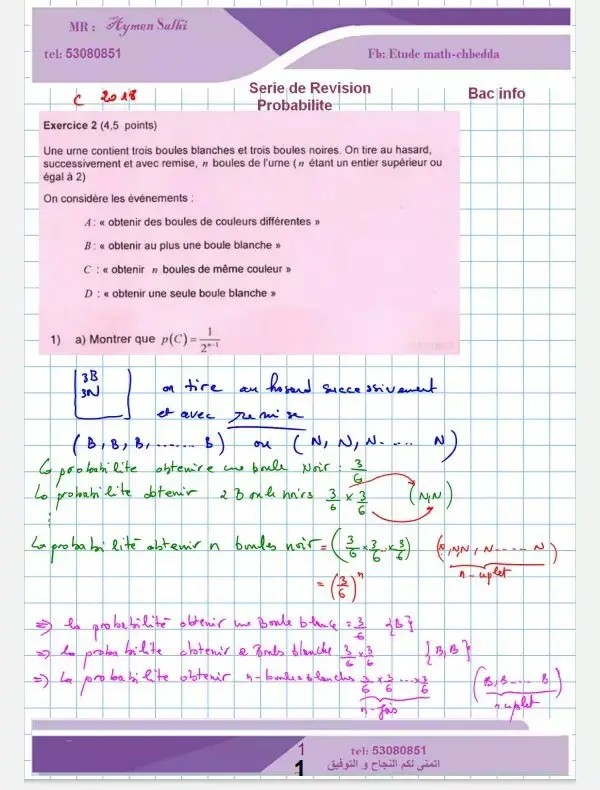 MR : Aymen Salhi
tel: 53080851
Fb: Etude math-chbedda
C 2018
Serie de Revision
Probabilite
Bac info
Exercice 2 (4,5 points)
Une urne contient trois boules blanches et trois boules noires. On tire au hasard,
successivement et avec remise, n boules de l'urne (n étant un entier supérieur ou
égal à 2)
On considère les événements :
A : « obtenir des boules de couleurs différentes »
B : « obtenir au plus une boule blanche »
C : « obtenir n boules de même couleur »
D : « obtenir une seule boule blanche »
1) a) Montrer que p(C) = 1/2^(n-1)
3B
3N
on tire au hasard successivement
et avec remise
(B, B, B, ....... B) ou (N, N, N. .... N)
La probabilité obtenire une boule Noir : 3/6
La probabilité obtenir 2 Boule noirs 3/6 × 3/6 (N,N)
La probabilité obtenir n boules noir = (3/6 × 3/6 ... × 3/6) (N,N,N, N..... N)
n-uplet
= (3/6)^n
⇒ la probabilité obtenir une Boule blanc = 3/6 {B}
⇒ la probabilité obtenir 2 Bouls blanche 3/6 × 3/6 {B, B}
⇒ La probabilité obtenir n-boules blanches 3/6 × 3/6 ... × 3/6 (B, B.... B)
n-fois n uplet
1
1
tel: 53080851
اتمنى لكم النجاح و التوفيق